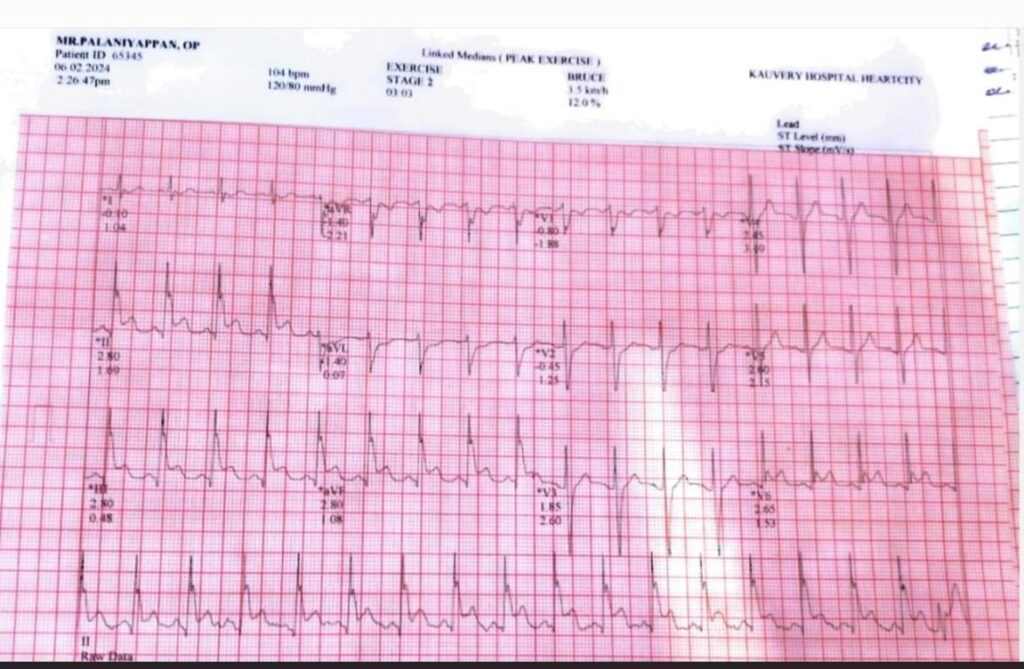 MR.PALANIYAPPAN, OP
Patient ID 65345
06 02 2024
2 26 47pm
104 bpm
120/80 mmHg
Linked Medians ( PEAK EXERCISE )
EXERCISE
STAGE 2
03 03
BRUCE
3.5 km/h
12.0 %
KAUVERY HOSPITAL HEARTCITY
Lead
ST Level (mm)
ST Slope (mV/s)
*I
-0.10
1.04
*aVR
-1.40
-2.21
*V1
-0.80
-1.88
2.45
*II
2.80
1.69
*aVL
-1.40
0.07
*V2
-0.45
1.25
*V5
2.60
2.15
*III
2.80
0.48
*aVF
2.80
1.08
*V3
1.85
2.60
*V6
2.65
1.53
II
Raw Data